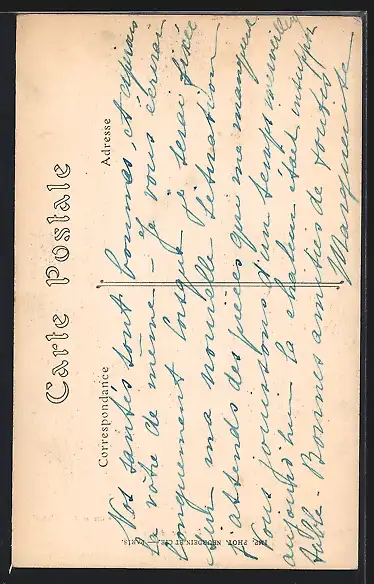 Carte Postale
Correspondance
Adresse
Vos santés sont bonnes, et après
la vôtre de même — Je vous écrirai
longuement lorsque je serai fixée
sur ma nouvelle situation
J'attends des pièces qui me manquent
Nous jouissons d'un temps merveilleux
aujourd'hui la chaleur était insuppor
table — Bonnes amitiés de toutes
Marguerite
IMP. PHOT. NEURDEIN ET CIE. PARIS.